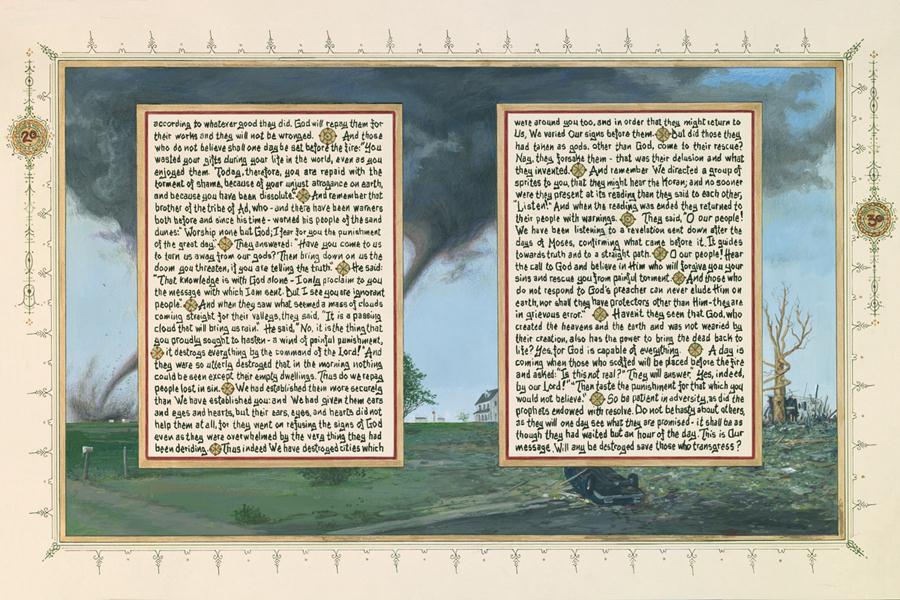 20
according to whatever good they did. God will repay them for
their works and they will not be wronged. And those
who do not believe shall one day be set before the fire: "You
wasted your gifts during your life in the world, even as you
enjoyed them. Today, therefore, you are repaid with the
torment of shame, because of your unjust arrogance on earth,
and because you have been dissolute." And remember that
brother of the tribe of Ad, who - and there have been warners
both before and since his time - warned his people of the sand
dunes: "Worship none but God; I fear for you the punishment
of the great day." They answered: "Have you come to us
to turn us away from our gods? Then bring down on us the
doom you threaten, if you are telling the truth." He said:
"That knowledge is with God alone - I only proclaim to you
the message with which I am sent. But I see you are ignorant
people." And when they saw what seemed a mass of clouds
coming straight for their valleys, they said, "It is a passing
cloud that will bring us rain." He said, "No, it is the thing that
you proudly sought to hasten - a wind of painful punishment,
it destroys everything by the command of the Lord!" And
they were so utterly destroyed that in the morning nothing
could be seen except their empty dwellings. Thus do we repay
people lost in sin. We had established them more securely
than We have established you: and We had given them ears
and eyes and hearts, but their ears, eyes, and hearts did not
help them at all, for they went on refusing the signs of God
even as they were overwhelmed by the very thing they had
been deriding. Thus indeed We have destroyed cities which
were around you too, and in order that they might return to
Us, We varied Our signs before them. But did those they
had taken as gods, other than God, come to their rescue?
Nay, they forsake them - that was their delusion and what
they invented. And remember We directed a group of
sprites to you, that they might hear the Koran; and no sooner
were they present at its reading than they said to each other,
"Listen!" And when the reading was ended they returned to
their people with warnings. They said, "O our people!
We have been listening to a revelation sent down after the
days of Moses, confirming what came before it. It guides
towards truth and to a straight path. O our people! Hear
the call to God and believe in Him who will forgive you your
sins and rescue you from painful torment. And those who
do not respond to God's preacher can never elude Him on
earth, nor shall they have protectors other than Him - they are
in grievous error." Haven't they seen that God, who
created the heavens and the earth and was not wearied by
their creation, also has the power to bring the dead back to
life? Yes, for God is capable of everything. A day is
coming when those who scoffed will be placed before the fire
and asked: "Is this not real?" They will answer, "Yes, indeed,
by our Lord!" "Then taste the punishment for that which you
would not believe." So be patient in adversity, as did the
prophets endowed with resolve. Do not be hasty about others,
as they will one day see what they are promised - it shall be as
though they had waited but an hour of the day. This is Our
message. Will any be destroyed save those who transgress?
30